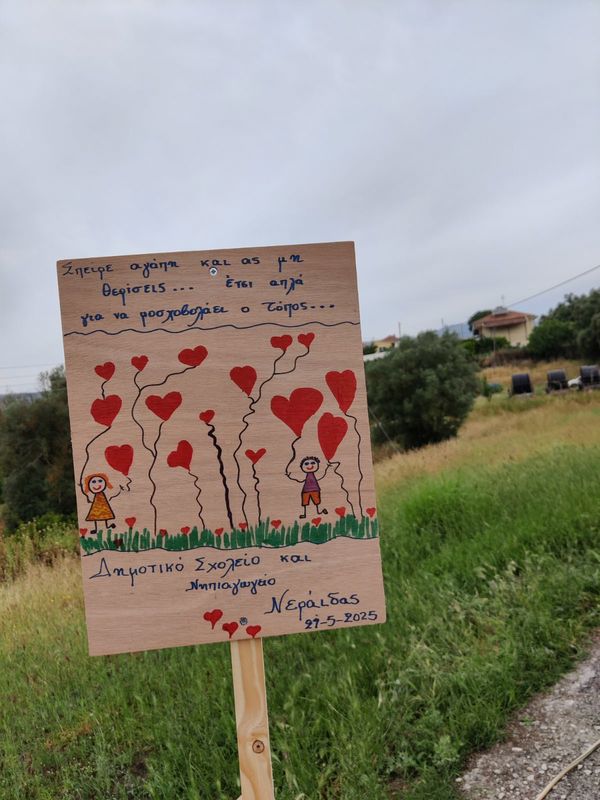 Σπείρε αγάπη και ας μη
θερίσεις... έτσι απλά
για να μοσχοβολάει ο Τόπος...
Δημοτικό Σχολείο και
Νηπιαγωγείο
Νεράιδας
27-5-2025